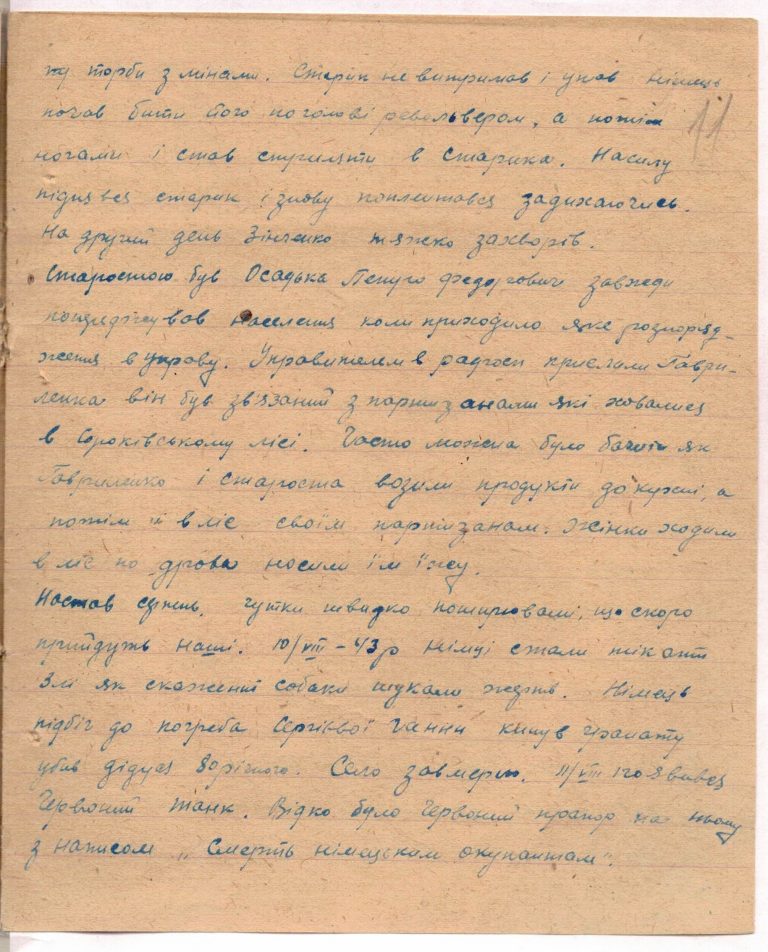 ну торби з мінами. Старик не витримав і упав німець
почав бити його по голові револьвером, а потім
11
ногами і став стріляти в старика. Насилу
піднявся старик і знову поплентався задихаючись.
На другий день Зінченко тяжко захворів.
Старостою був Осадька Федорович завжди
попереджував населення коли приходило яке розпоряд-
ження в управу. Управителем в радгосп прислали Гаври-
ленка він був зв'язаний з партизанами які ховалися
в лісі. Часто можна було бачити як
Гавриленко і староста возили продукти до кухні, а
потім й в ліс своїм партизанам. Жінки ходили
в ліс по дрова носили їм їжу.
Настав серпень, чутки швидко поширювали, що скоро
прийдуть наші. 10/VIII – 43 р німці стали тікати
Злі як скаженні собаки шукали жертв. Німець
підбіг до погреба Сергієвої Ганни кинув гранату
убив дідуся 80 річного. Село завмерло. 11/VIII явився
Червоний танк. Видко було Червоний прапор на ньому
з написом „Смерть німецьким окупантам".